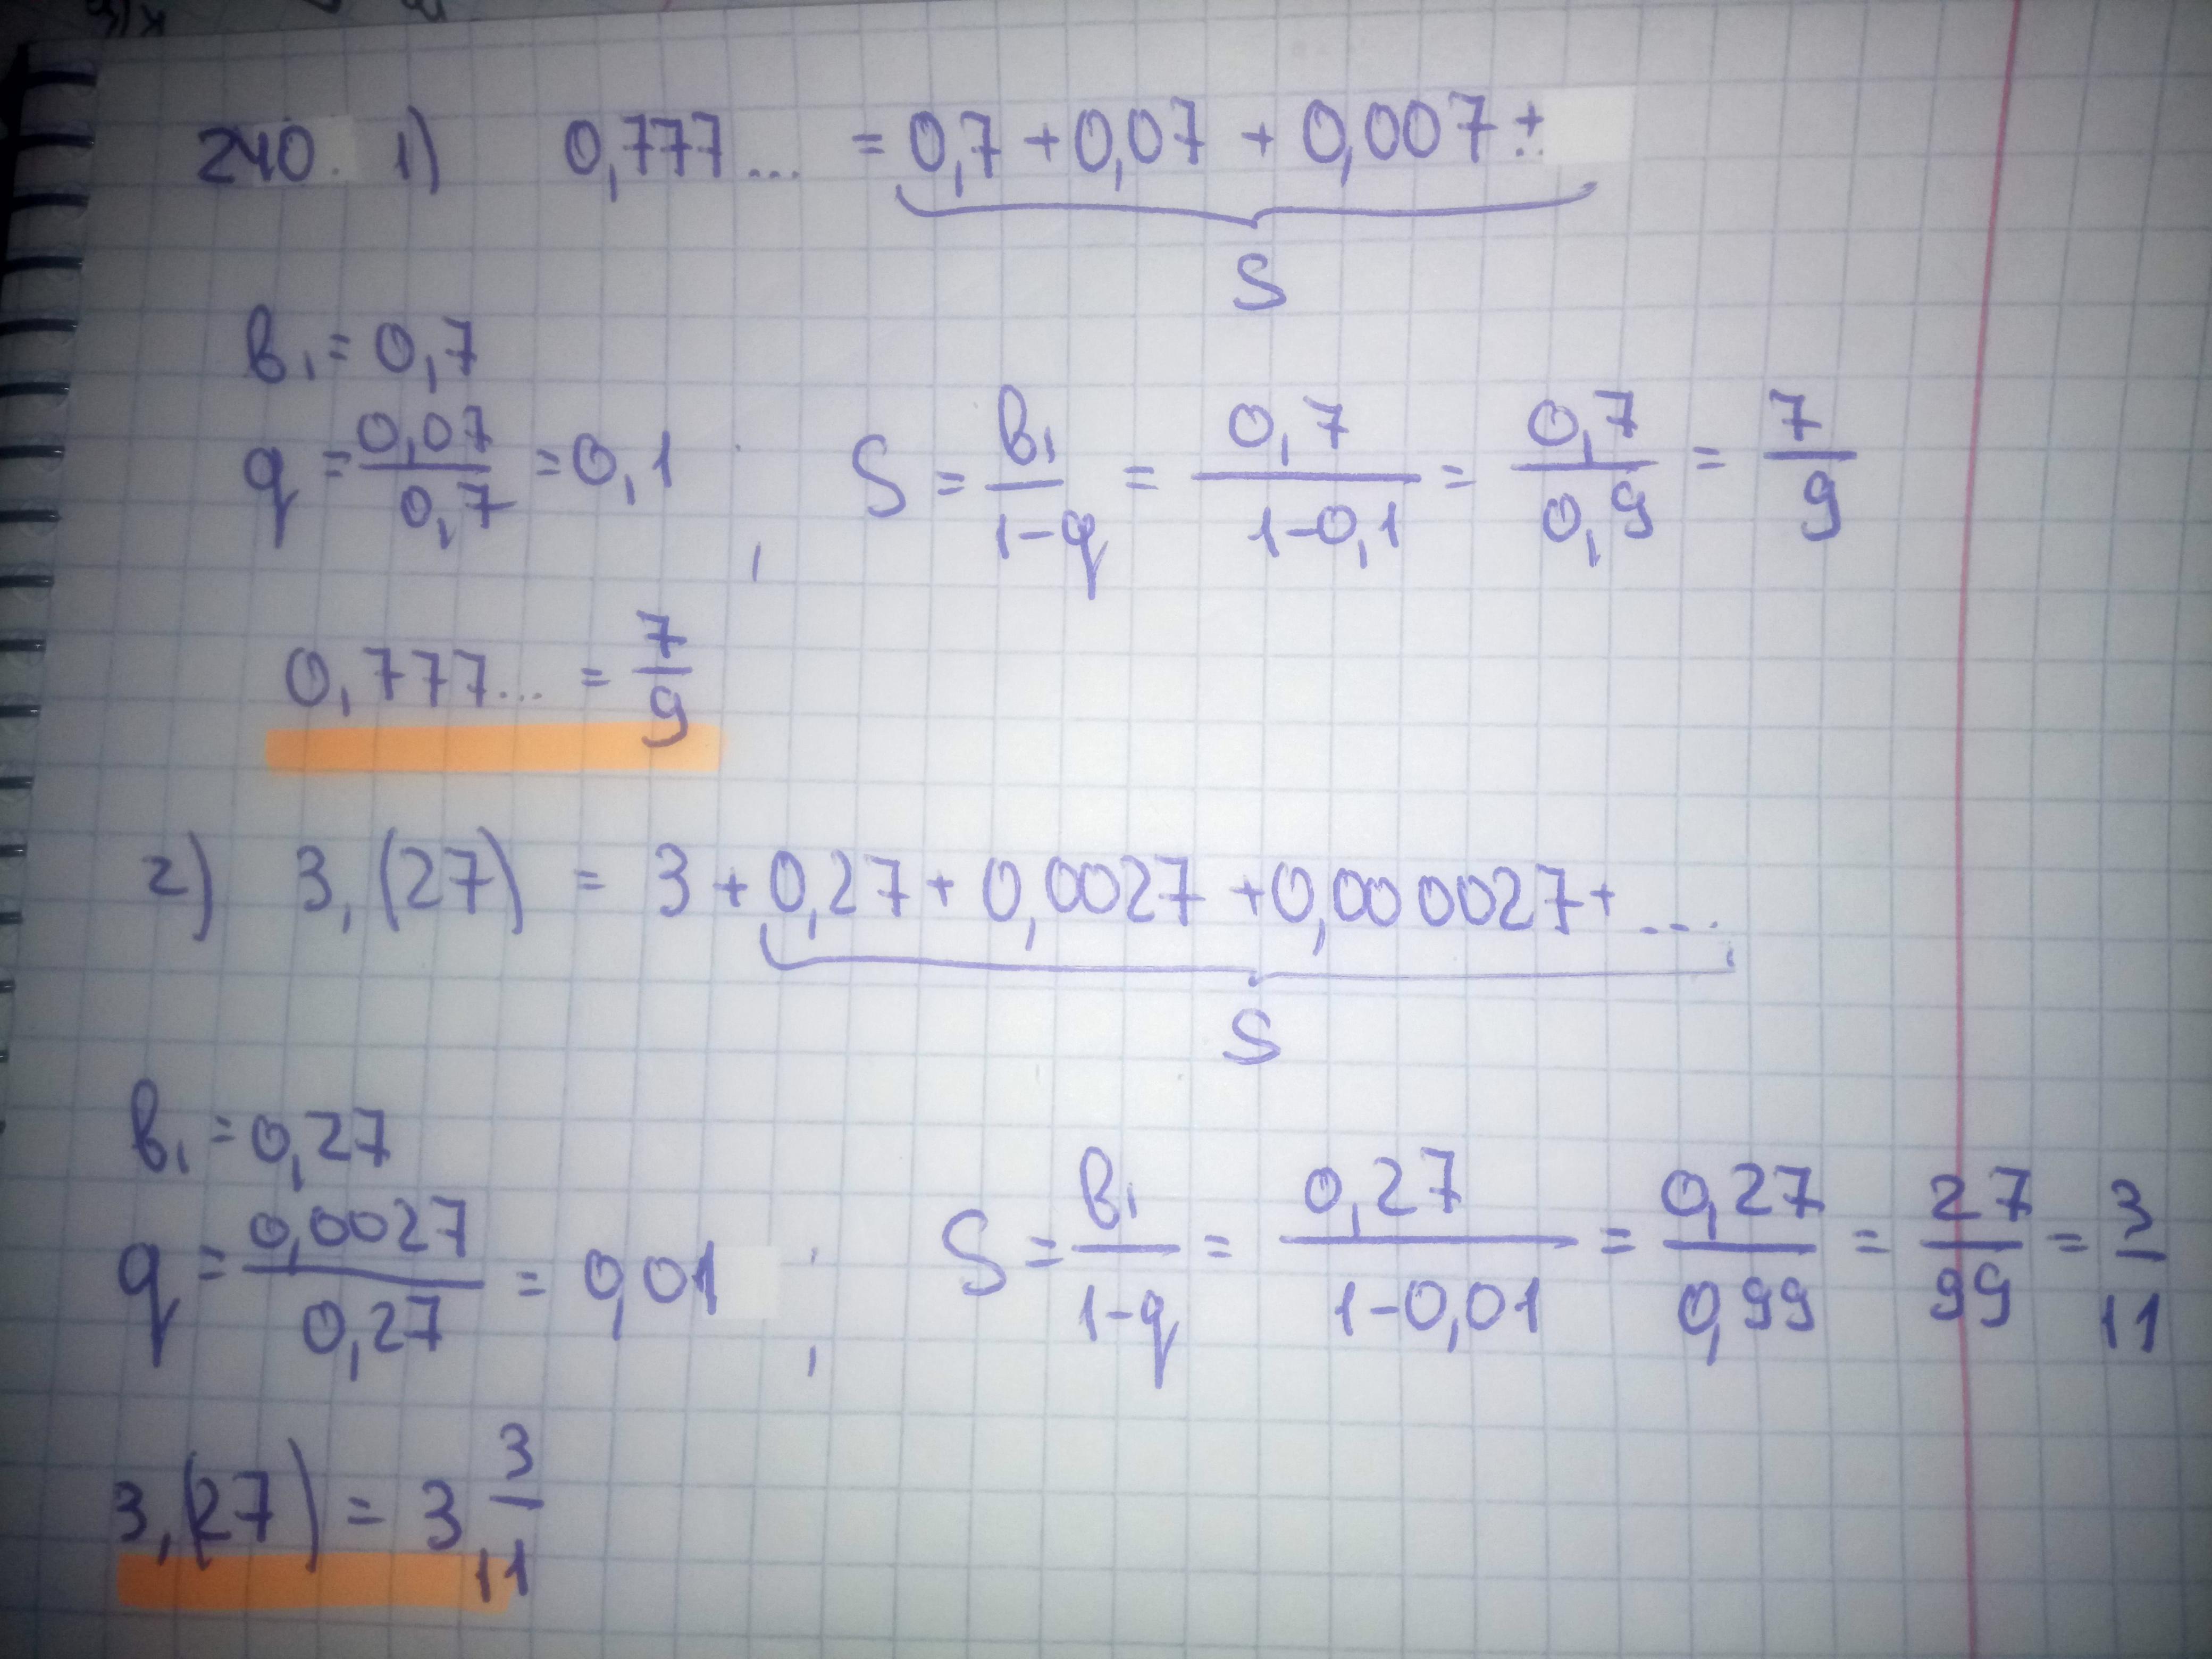 240. 1) 0,777... = 0,7 + 0,07 + 0,007 + ..
S
b₁ = 0,7
q = 0,07/0,7 = 0,1 ; S = b₁/(1-q) = 0,7/(1-0,1) = 0,7/0,9 = 7/9
0,777... = 7/9
2) 3,(27) = 3 + 0,27 + 0,0027 + 0,000027 + ....
S
b₁ = 0,27
q = 0,0027/0,27 = 0,01 ; S = b₁/(1-q) = 0,27/(1-0,01) = 0,27/0,99 = 27/99 = 3/11
3,(27) = 3 3/11